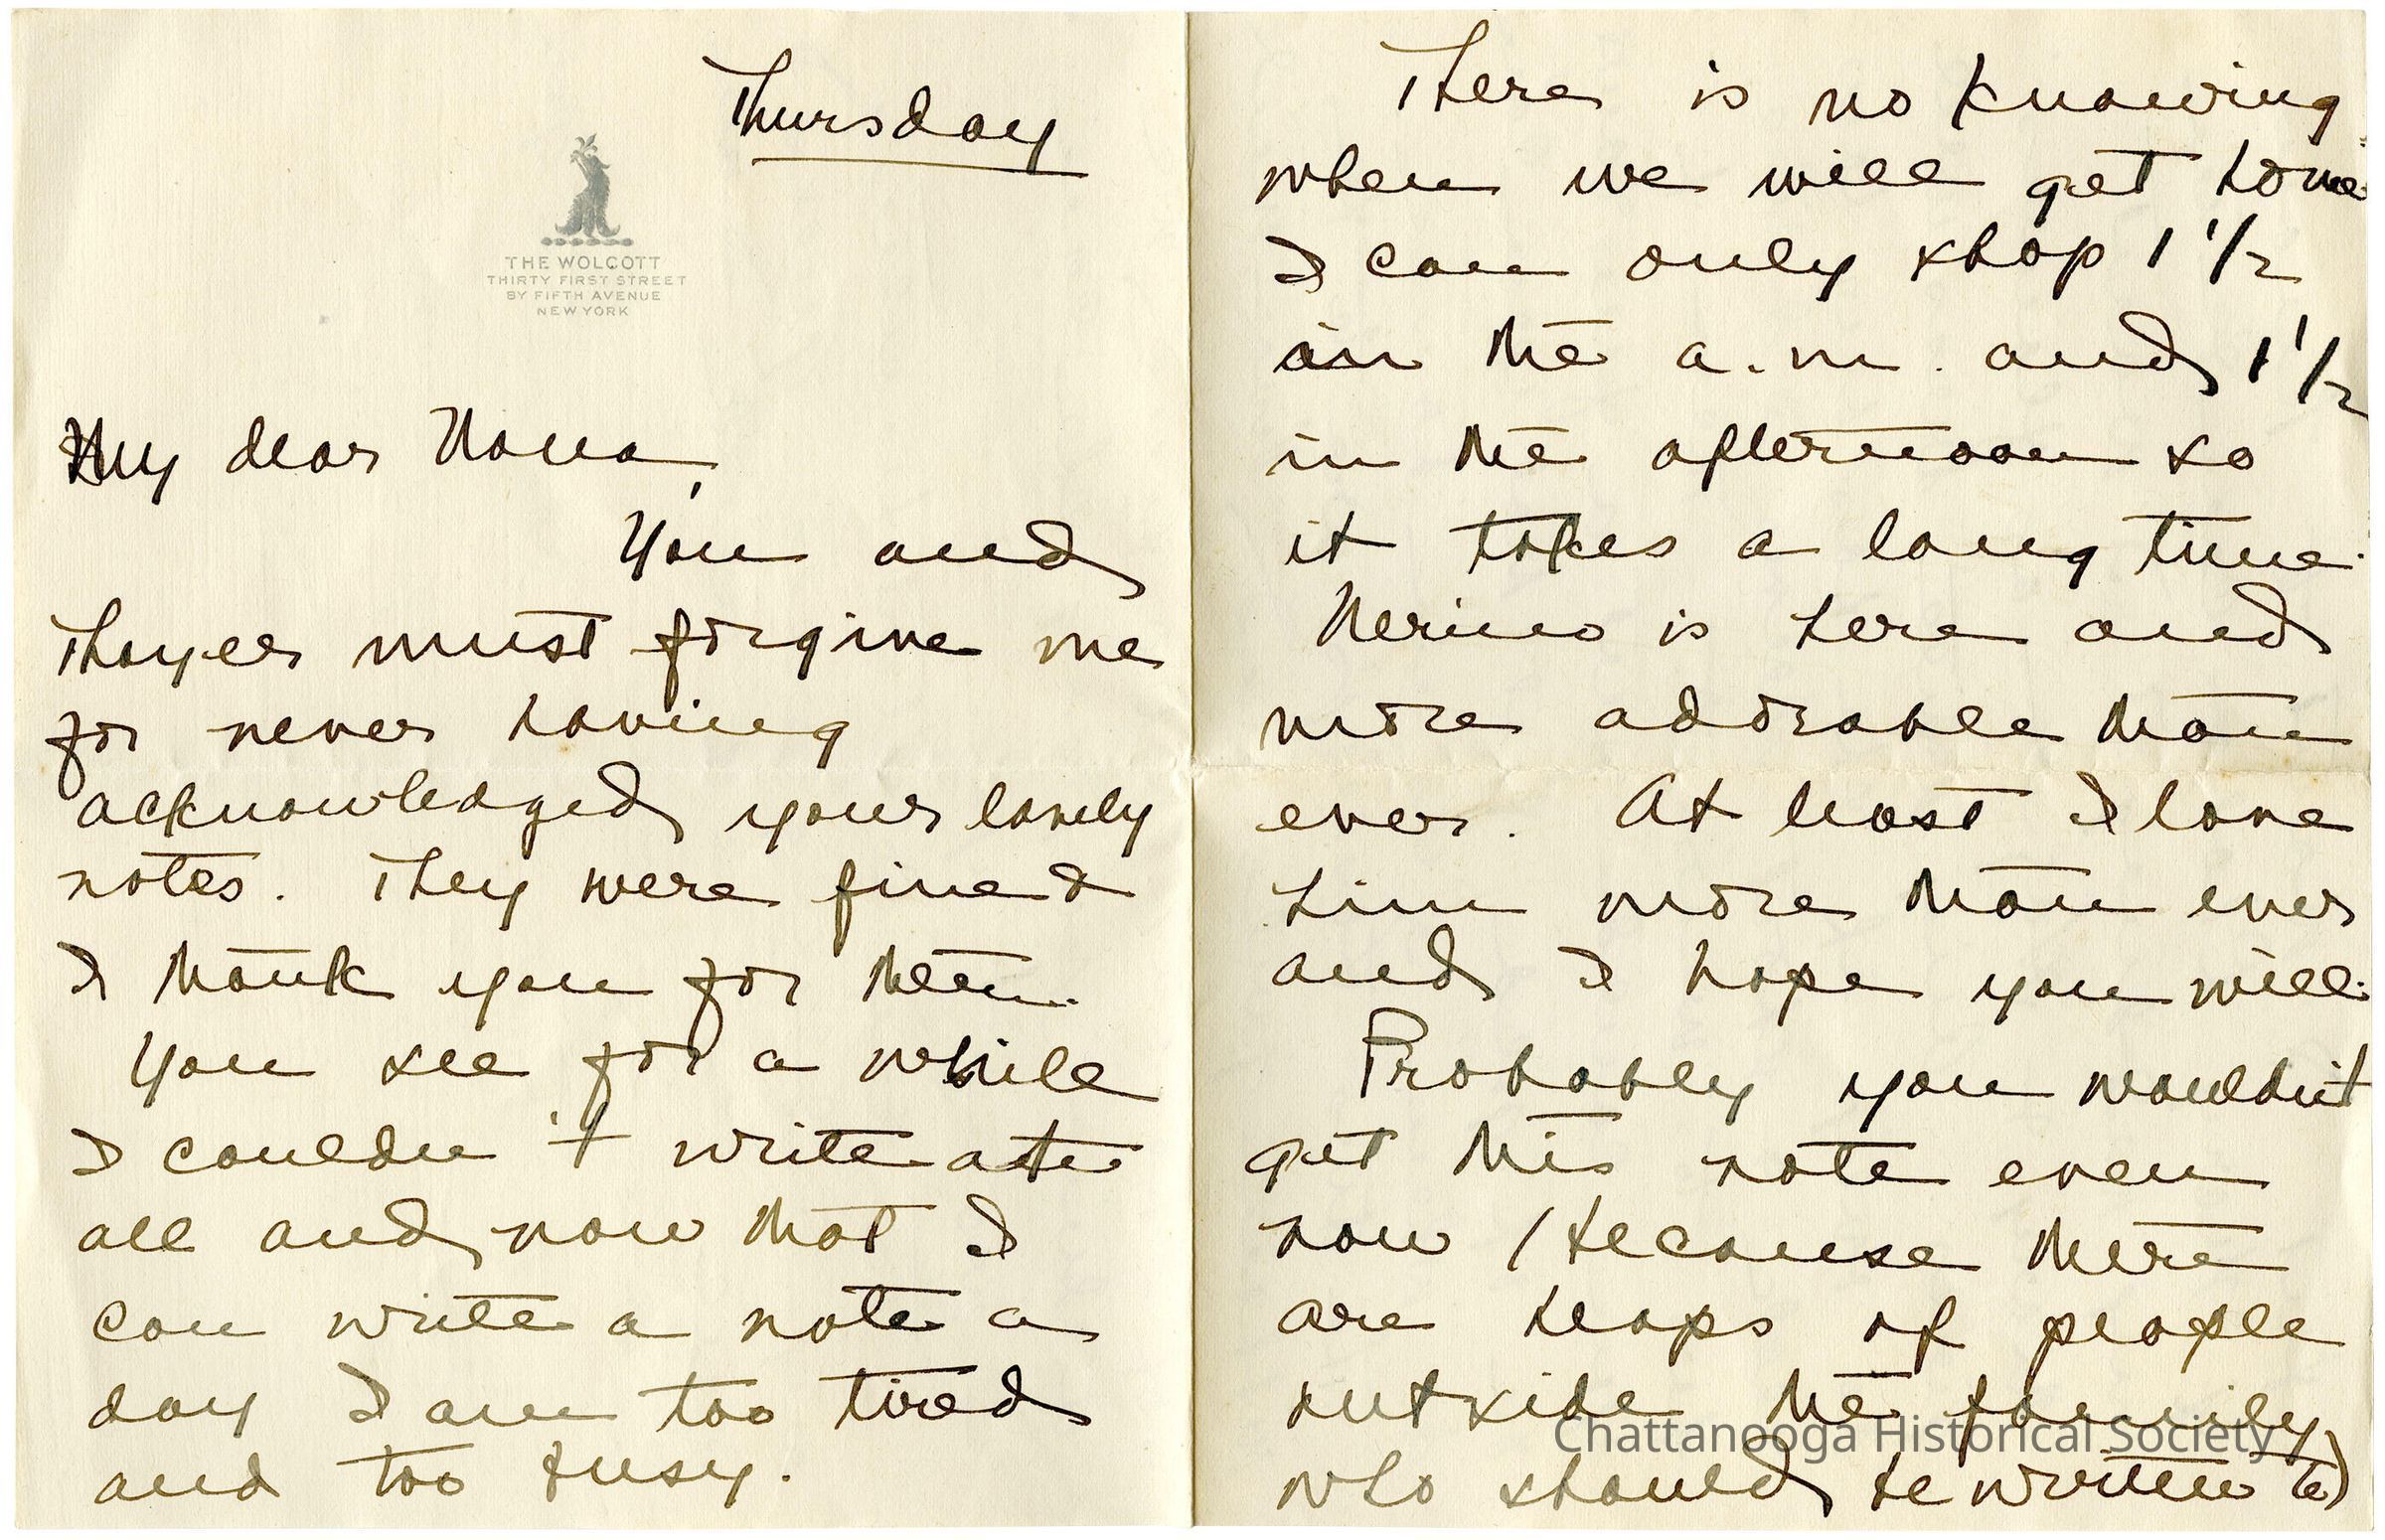 Thursday
THE WOLCOTT
THIRTY FIRST STREET
BY FIFTH AVENUE
NEW YORK
My dear Nona,
You and
Thayer must forgive me
for never having
acknowledged your lovely
notes. They were fine &
I thank you for them.
You see for a while
I couldn't write at
all and now that I
can write a note a
day I am too tired
and too busy.
There is no knowing
when we will get home
I can only shop 1 1/2
in the a.m. and 1 1/2
in the afternoon so
it takes a long time.
Merino is here and
more adorable than
ever. At least I love
him more than ever
and I hope you will.
Probably you wouldn't
get this note even
now (because there
are heaps of people
outside the family
who should be written to)
Chattanooga Historical Society